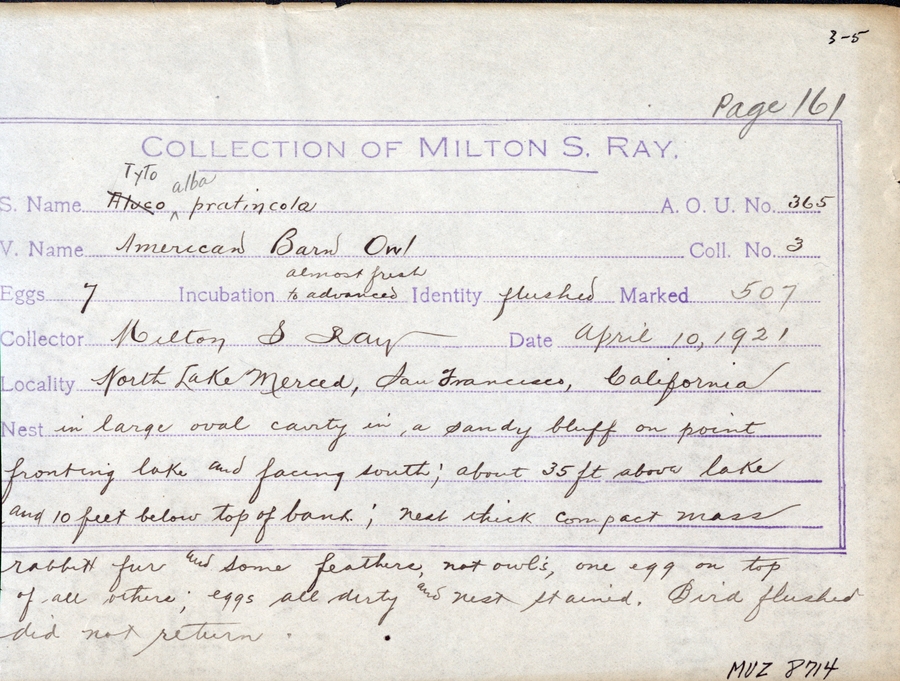 3-5
Page 161
COLLECTION OF MILTON S. RAY.
Tyto alba
S. Name Aluco ^ pratincola A. O. U. No. 365
V. Name American Barn Owl Coll. No. 3
almost fresh
Eggs 7 Incubation to advanced Identity flushed Marked 507
Collector Milton S Ray Date April 10, 1921
Locality North Lake Merced, San Francisco, California
Nest in large oval cavity in a sandy bluff on point
fronting lake and facing south; about 35 ft above lake
and 10 feet below top of bank; nest thick compact mass
rabbit fur and some feathers, not owl's, one egg on top
of all others; eggs all dirty and nest stained. Bird flushed
did not return.
MVZ 8714